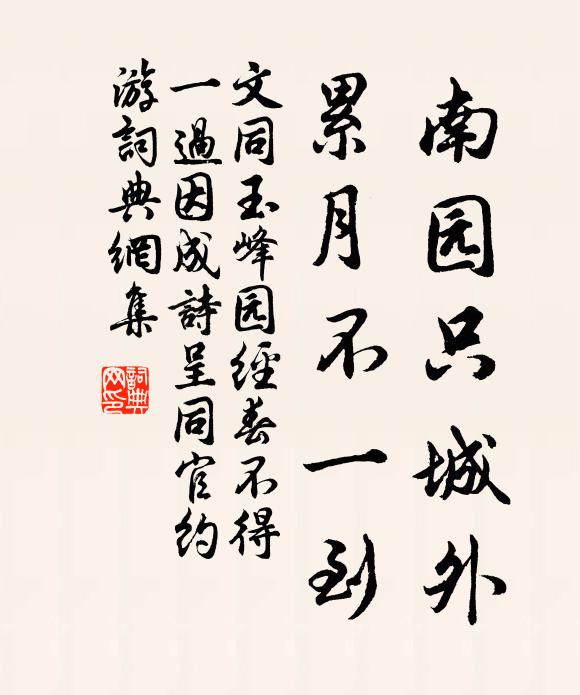 南园只城外
累月不一到
文同玉峰园經春不得
一過因成詩呈同官约
游詞典網集
詞典
网印